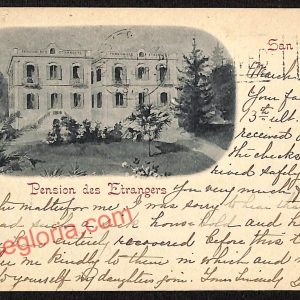 PENSION DES ETRANGERS
San
March
Your fa
3rd ult.
received
the checks
ived safely
Pension des Etrangers
You very much
the matter for me I was sorry to hear th
had household and h
entirely recovered before this t
er me kindly to them in which and m
to yourself my daughters join. Yours Sincerely
egloria.com